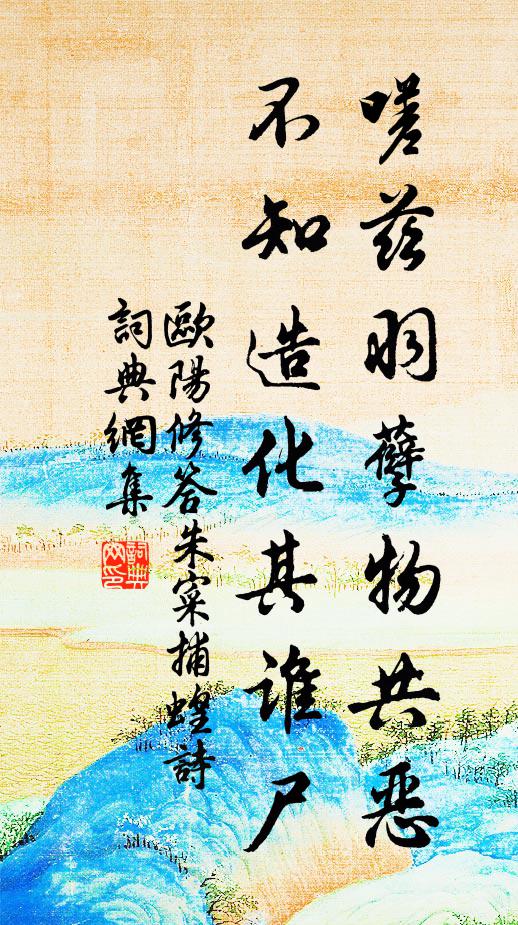 嗟茲羽孽物共惡
不知造化其誰尸
歐陽修答朱寀捕蝗詩
詞典網集
詞典網印